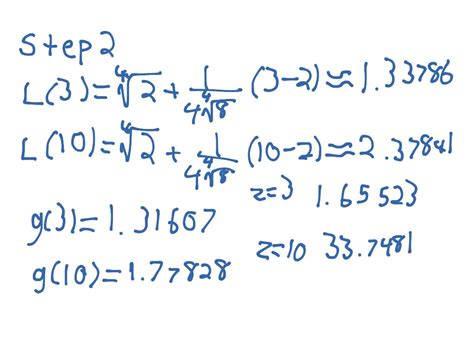 Step 2
L(3)=∜2+1/(4∜8)(3-2)≈1.33786
L(10)=∜2+1/(4∜8)(10-2)≈2.37841
z=3 1.65523
g(3)=1.31607
z=10 33.7481
g(10)=1.77828